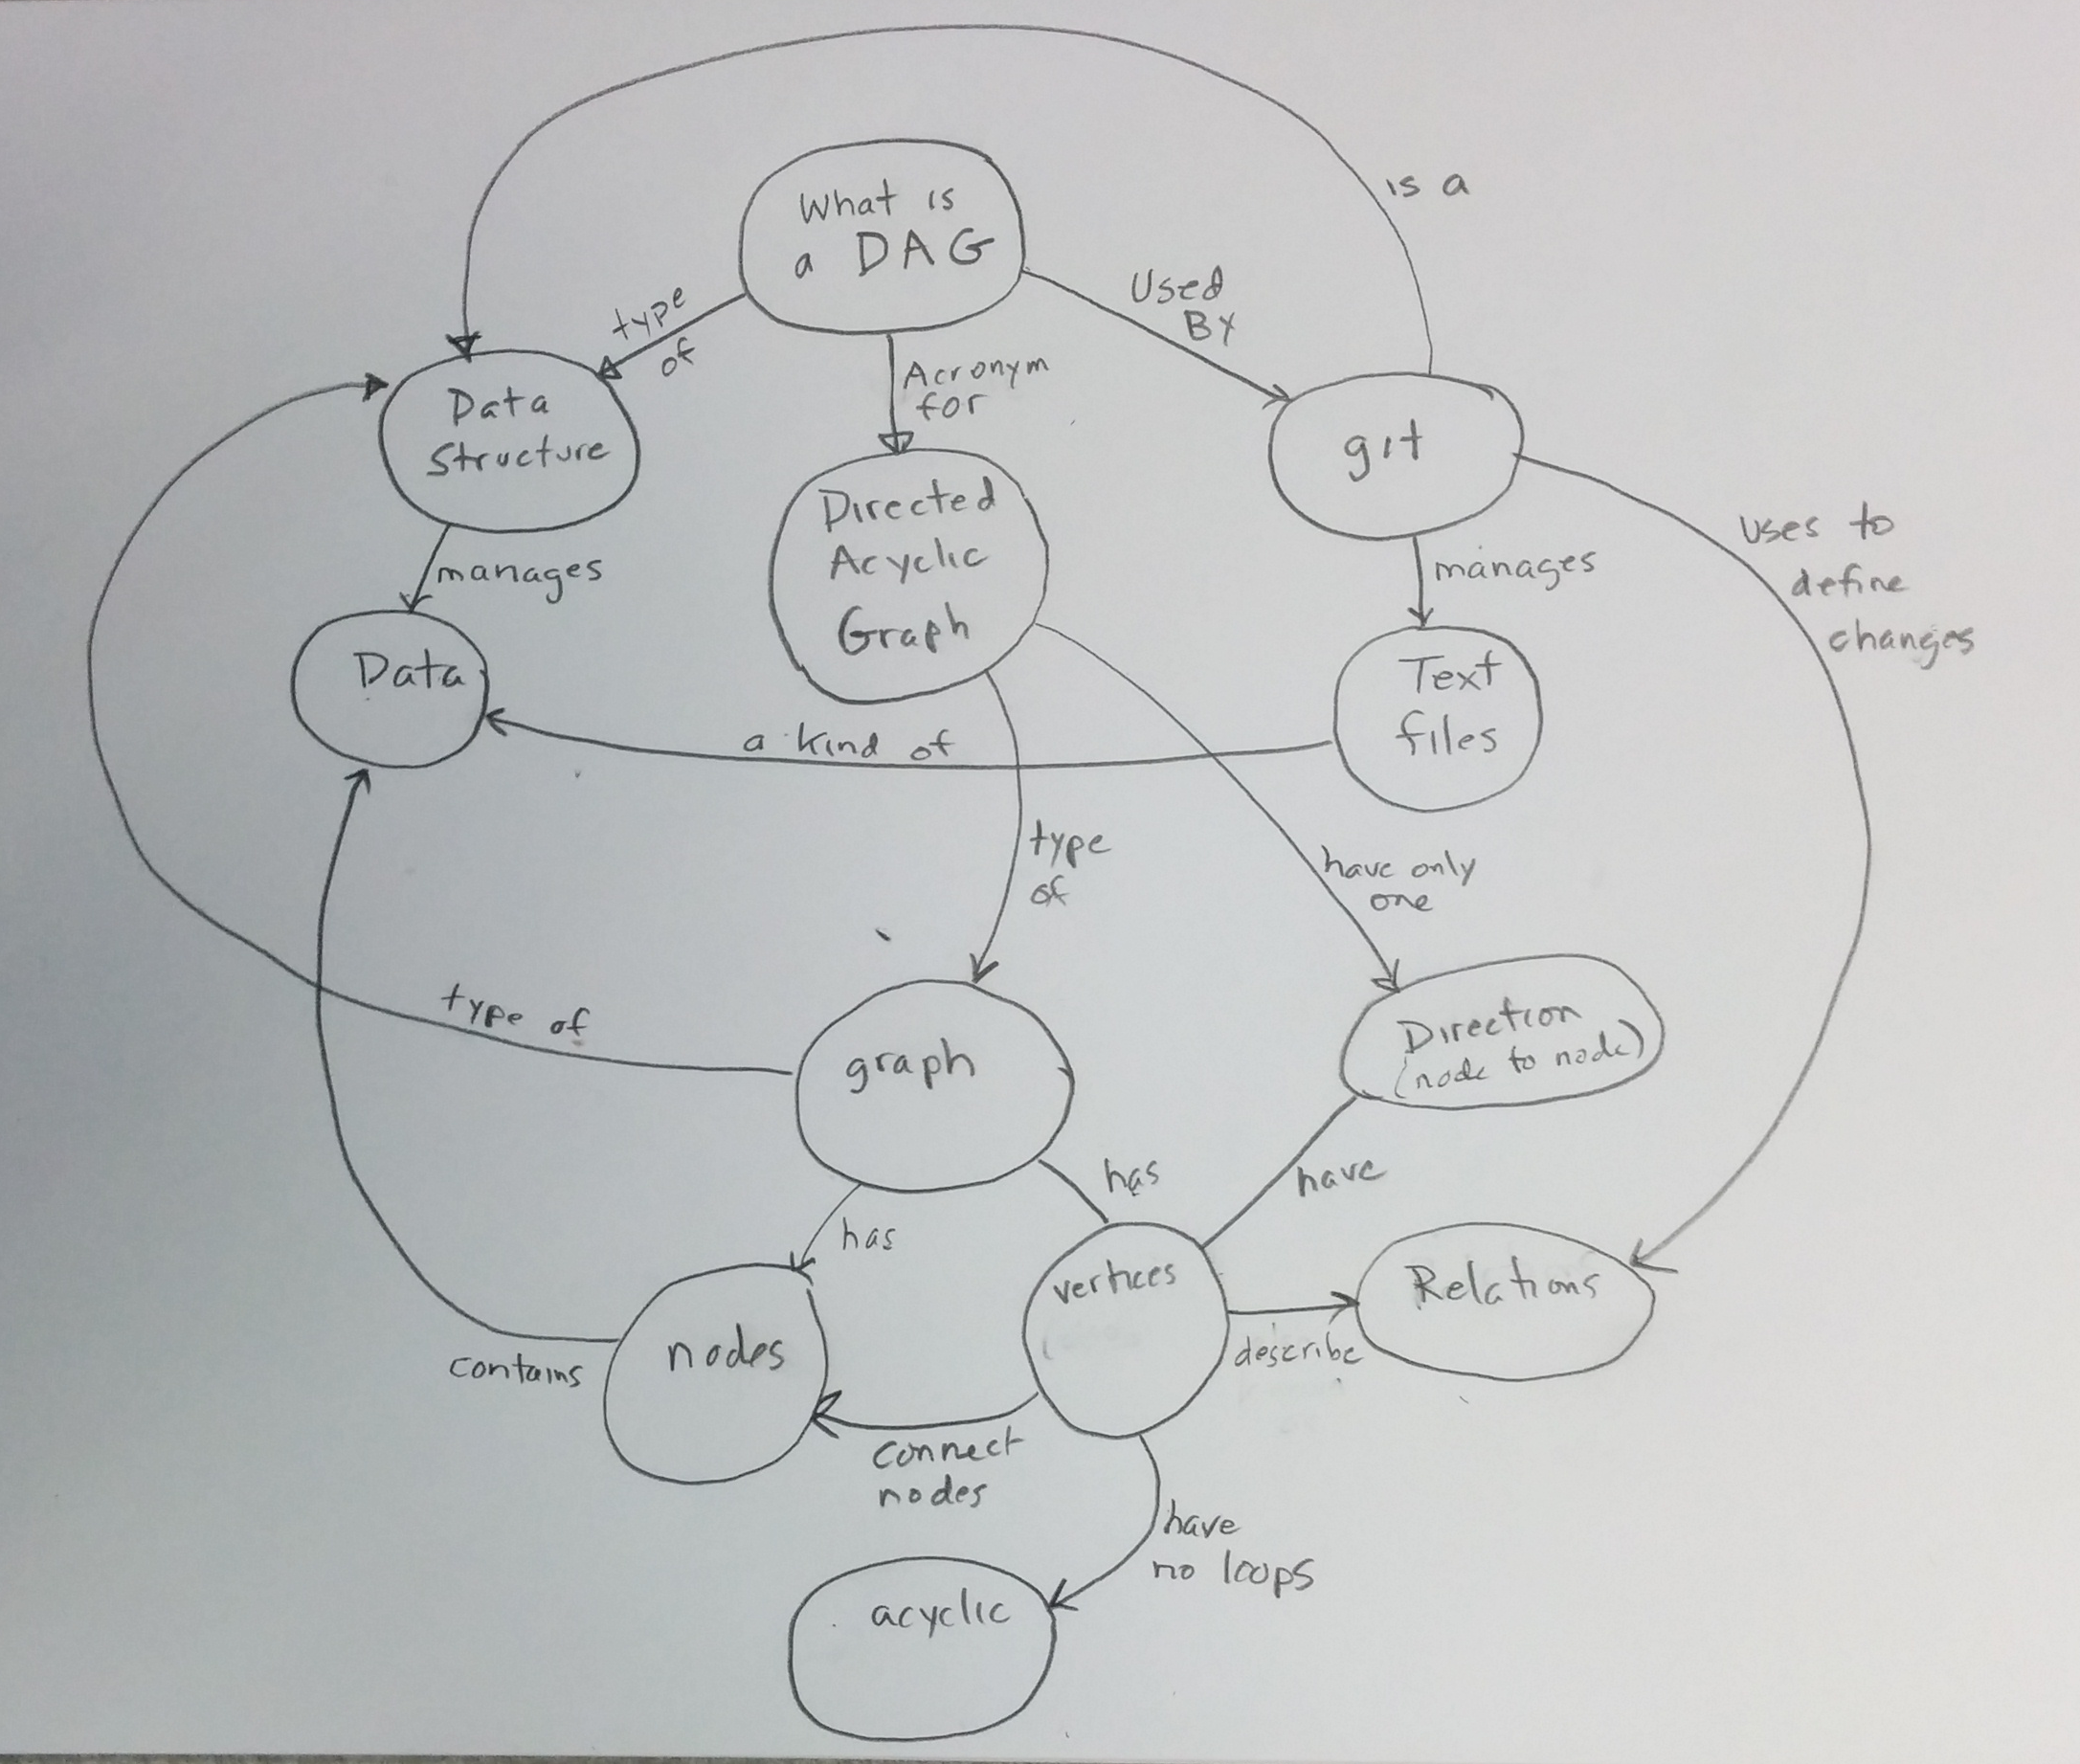 is a
What is
a DAG
type
of
Used
By
Acronym
for
Data
Structure
git
Directed
Acyclic
Graph
uses to
define
changes
manages
manages
Data
Text
files
a kind of
type
of
have only
one
type of
Direction
(node to node)
graph
has
have
has
vertices
Relations
describe
nodes
contains
connect
nodes
have
no loops
acyclic